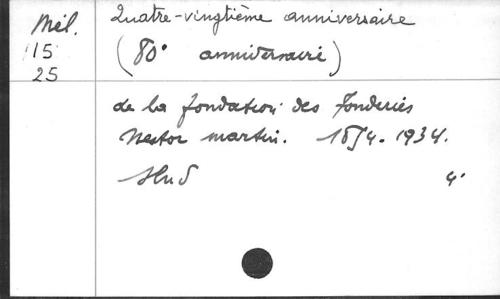 Mél.
115
25
Quatre-vingtième anniversaire
(80° anniversaire)
de la fondation des Fonderies
Nestor Martin. 1854-1934.
4°